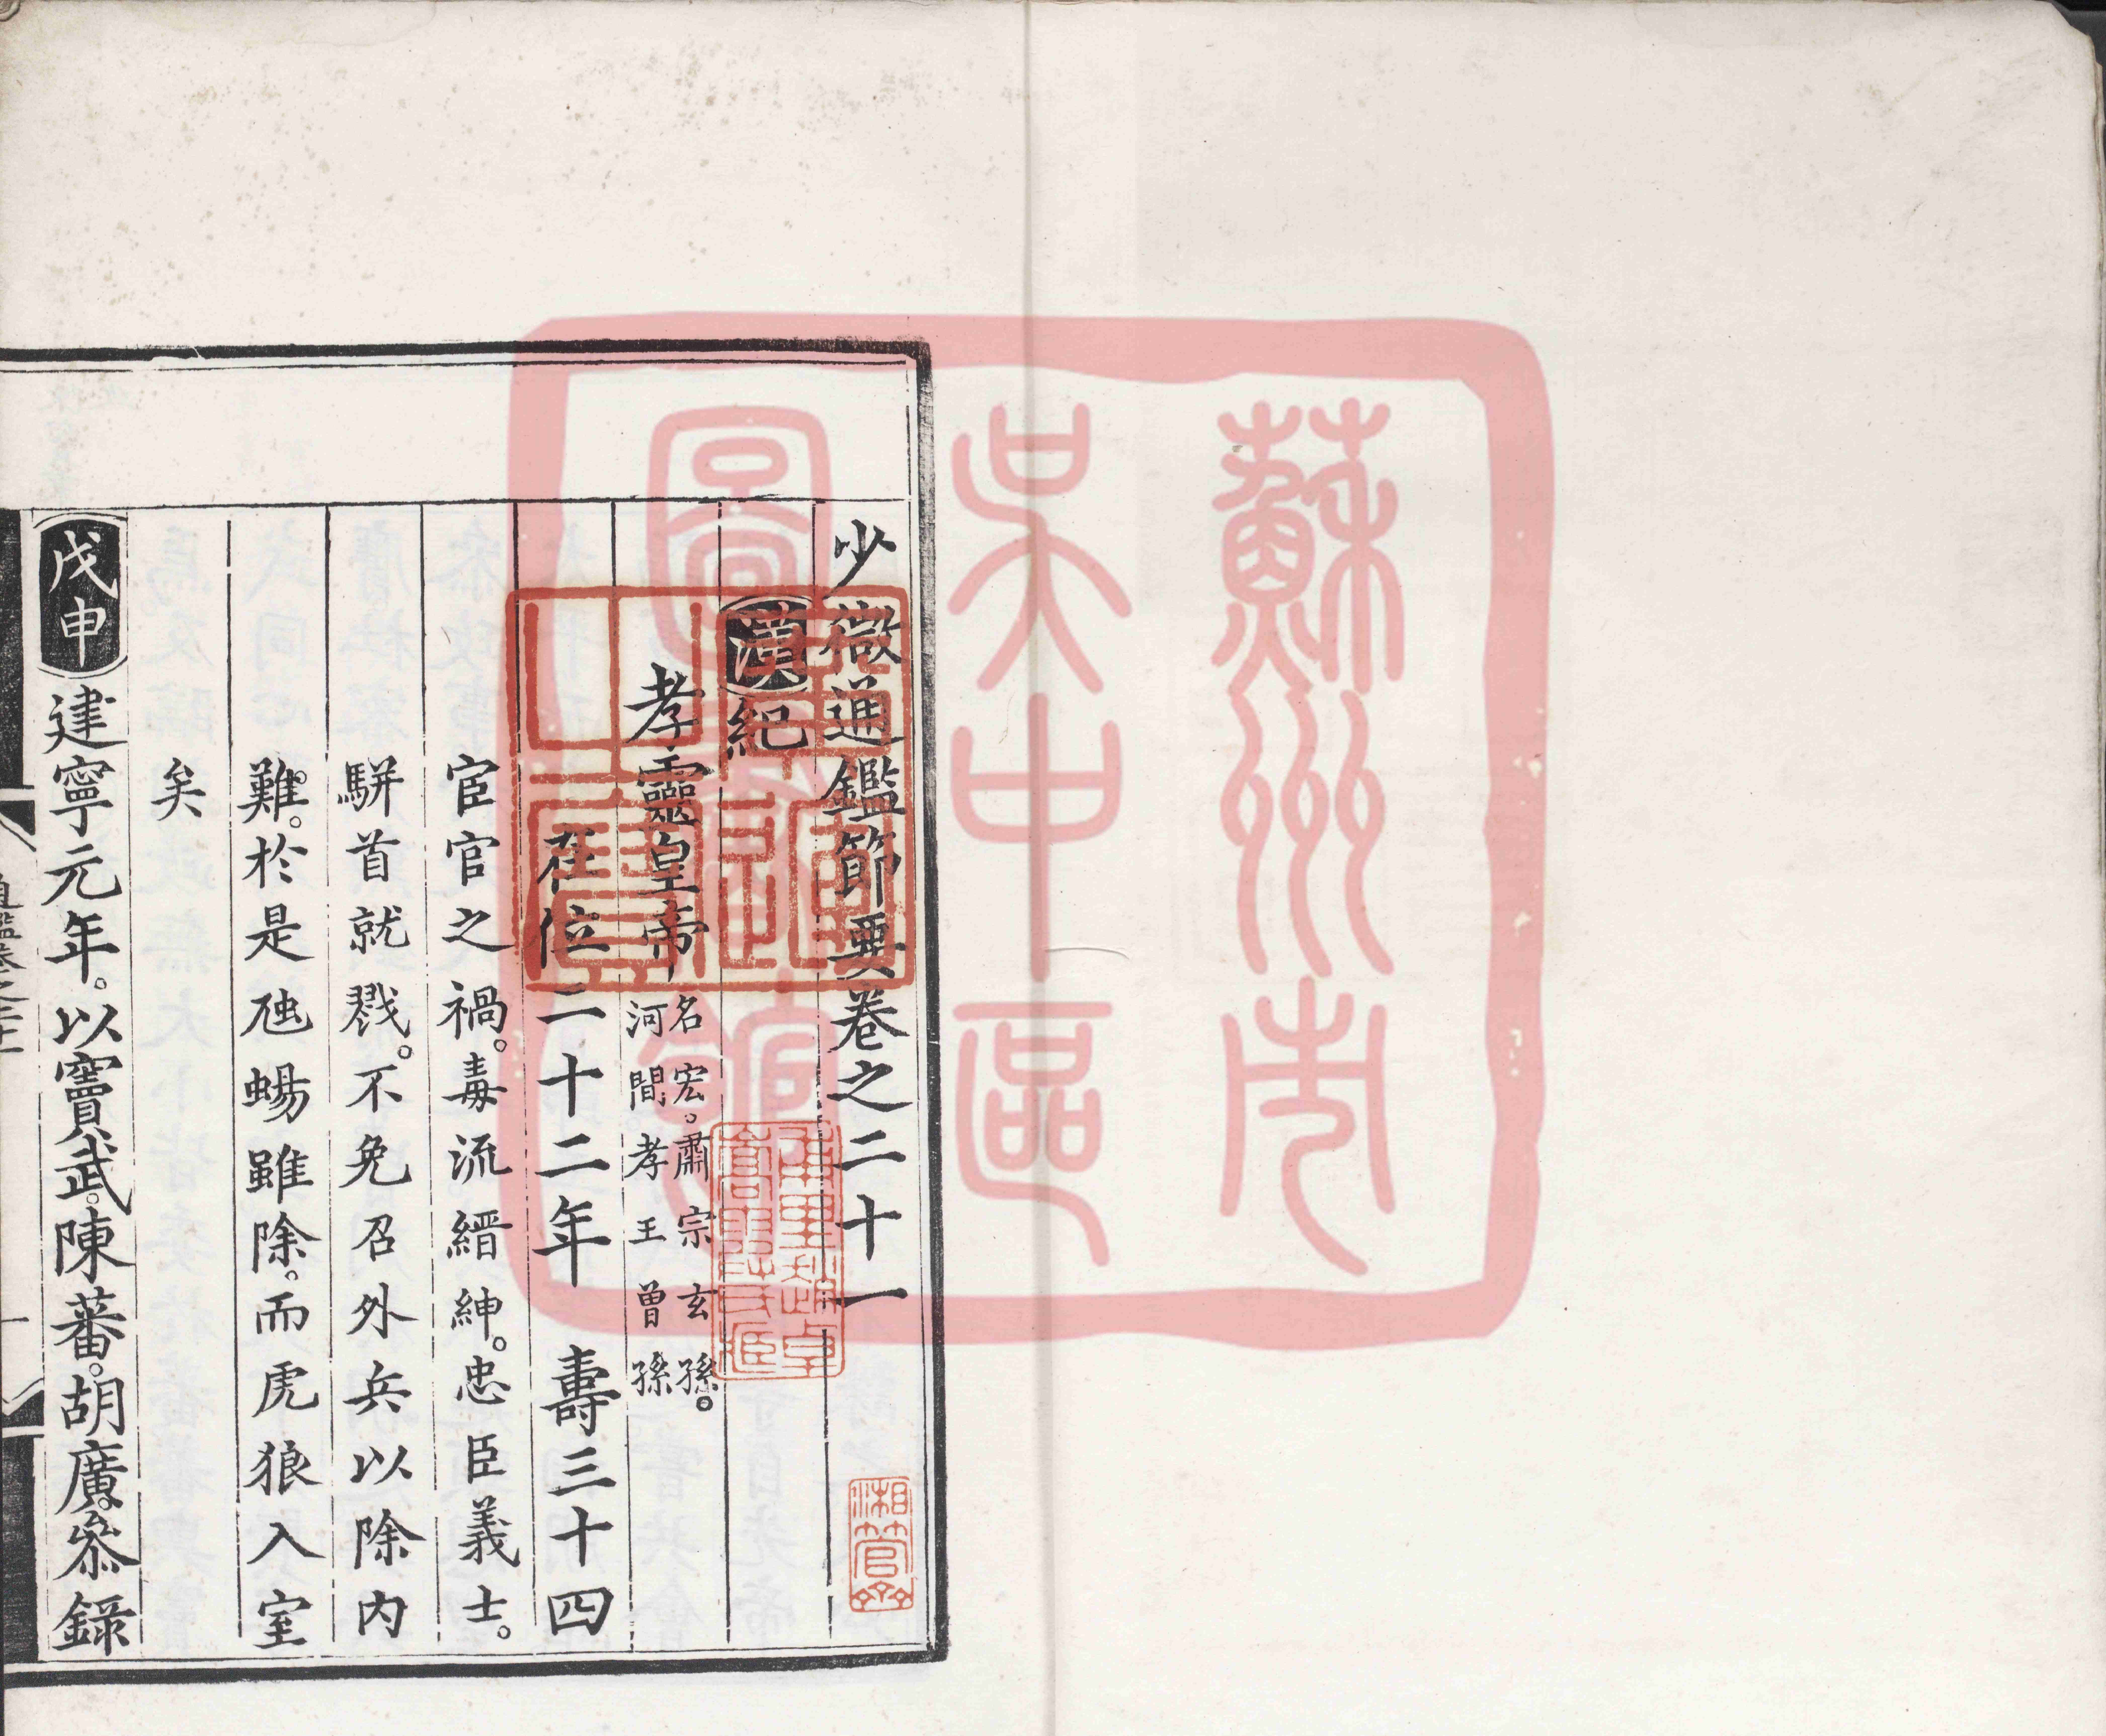 少微通鑑節要卷之二十一
漢紀
孝靈皇帝 名宏。肅宗玄孫。
河間孝王曾孫
在位二十二年 壽三十四
宦官之禍。毒流縉紳。忠臣義士。
駢首就戮。不免召外兵以除內
難。於是虺蜴雖除。而虎狼入室
矣
戊申 建寧元年。以竇武。陳蕃。胡廣。叅錄
蘇州市
吳中區
圖書館
湘管齋